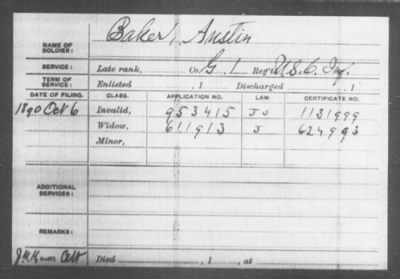 NAME OF SOLDIER: Baker, Austin
SERVICE: Late rank, Co. G, 1 Reg't U.S.C. Inf.
TERM OF SERVICE: Enlisted , 1 Discharged , 1
DATE OF FILING. CLASS. APPLICATION NO. LAW. CERTIFICATE NO.
1890 Oct 6 Invalid, 953415 1131999
Widow, 611913 624993
Minor,
ADDITIONAL SERVICES:
REMARKS:
Died , 1 , at